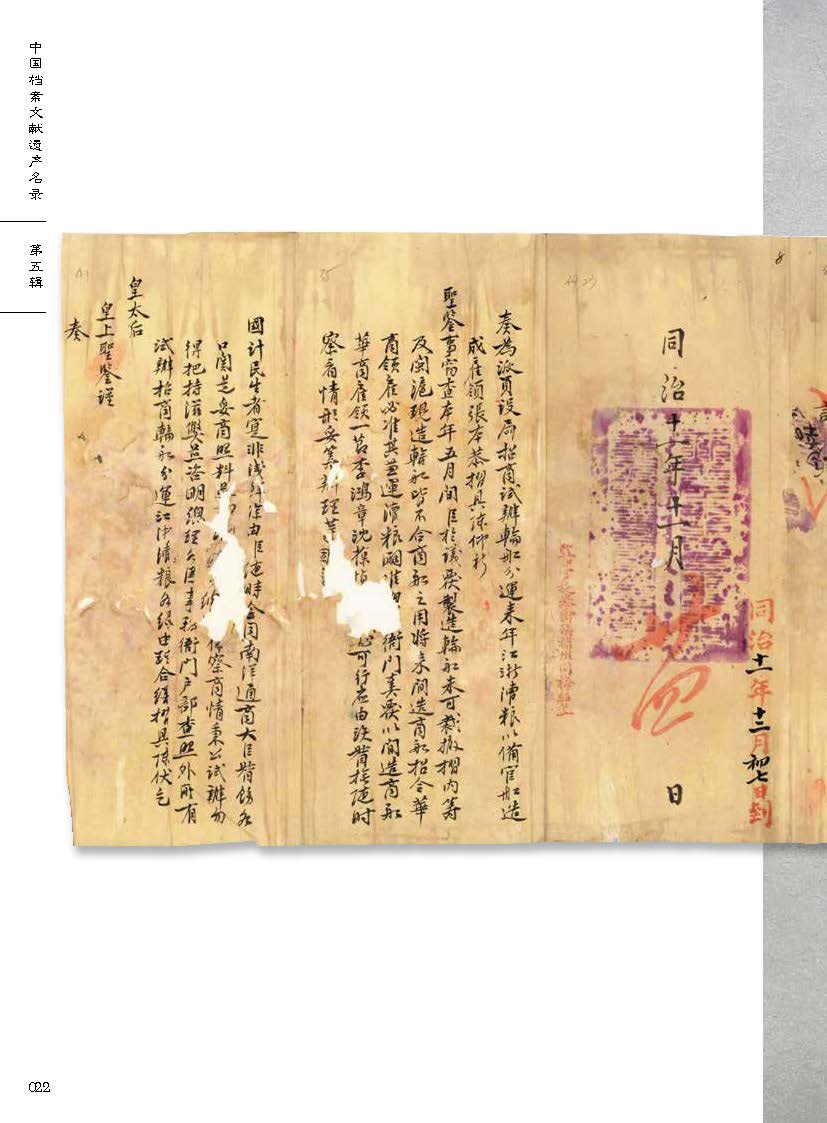 中国档案文献遗产名录
第五辑
同治十一年十二月初七日到
同治十一年十一月 日
奏為派員設局招商試辦輪船分運來年江浙漕粮以備官船造
成雇領張本恭摺具陳仰祈
聖鑒事竊查本年五月間臣於議覆製造輪船未可裁撤摺內籌
及閩滬現造輪船皆不合商船之用將來間造商船招令華
商領雇必准其兼運漕粮嗣准 衙門奏覆以間造商船
華商雇領一節李鴻章沈葆 可行應由該督撫隨時
察看情形妥籌辦理等因
國計民生者寔非淺鮮除由臣隨時會同南洋通商大臣督飭各
口關道妥商照料 體察商情秉公試辦勿
得把持滋弊並咨明總理各國事務衙門戶部查照外所有
試辦招商輪船分運江浙漕粮各緣由理合繕摺具陳伏乞
皇太后
皇上聖鑒謹
奏
022